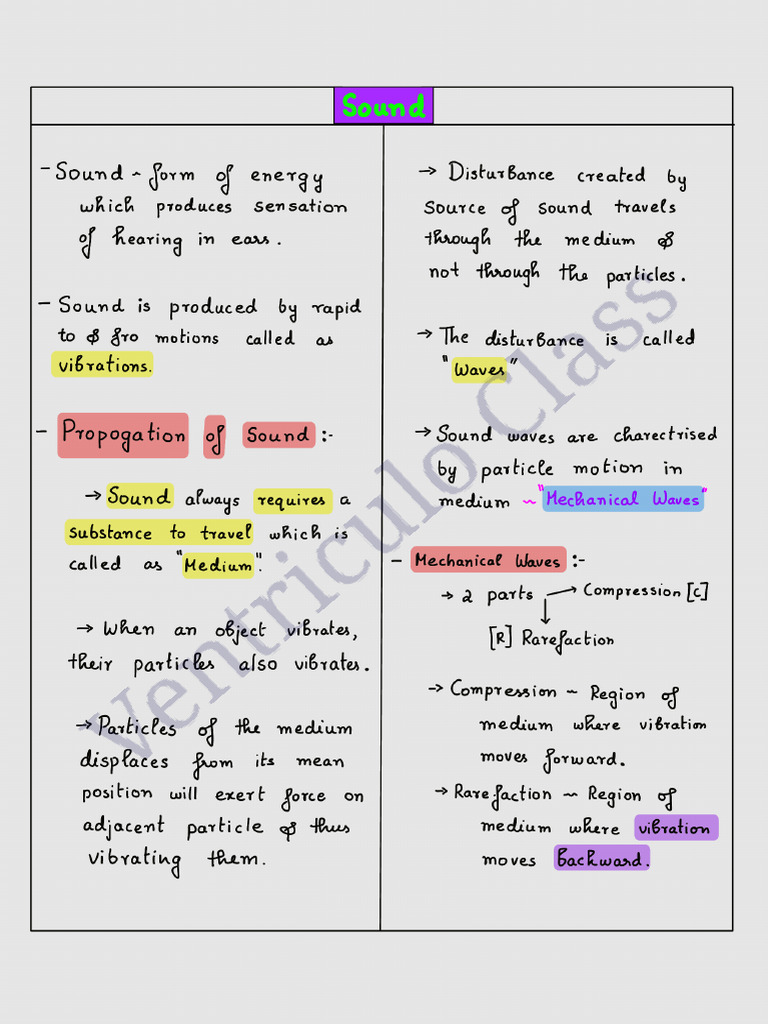 Sound
- Sound ~ form of energy
which produces sensation
of hearing in ears.
- Sound is produced by rapid
to & fro motions called as
vibrations.
- Propogation of Sound :-
→ Sound always requires a
substance to travel which is
called as "Medium".
→ When an object vibrates,
their particles also vibrates.
→ Particles of the medium
displaces from its mean
position will exert force on
adjacent particle & thus
vibrating them.
→ Disturbance created by
source of sound travels
through the medium &
not through the particles.
→ The disturbance is called
"Waves"
→ Sound waves are charectrised
by particle motion in
medium ~ "Mechanical Waves"
- Mechanical Waves :-
→ 2 parts → Compression [C]
↓
[R] Rarefaction
→ Compression ~ Region of
medium where vibration
moves forward.
→ Rarefaction ~ Region of
medium where vibration
moves Backward.
Ventriculo Class